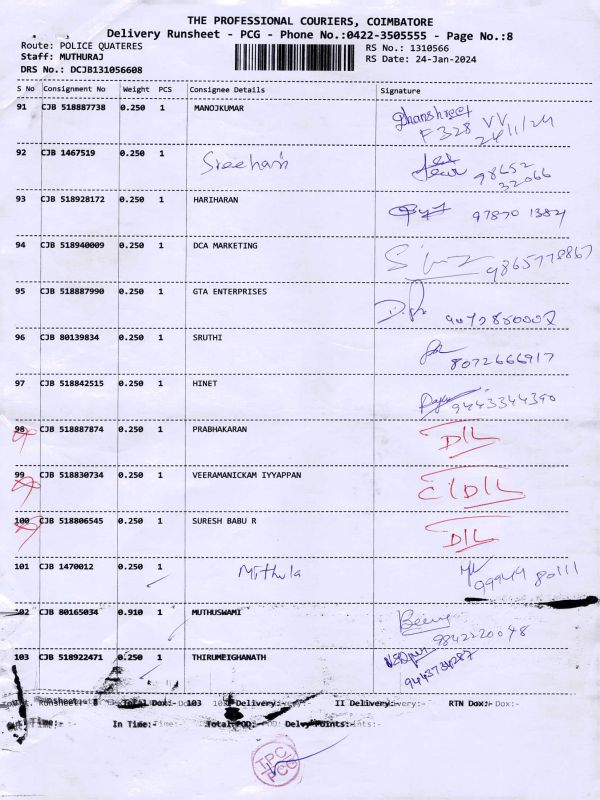 THE PROFESSIONAL COURIERS, COIMBATORE
Delivery Runsheet - PCG - Phone No.:0422-3505555 - Page No.:8
Route: POLICE QUATERES RS No.: 1310566
Staff: MUTHURAJ RS Date: 24-Jan-2024
DRS No.: DCJB131056608
S No Consignment No Weight PCS Consignee Details Signature
91 CJB 518887738 0.250 1 MANOJKUMAR
F 328
92 CJB 1467519 0.250 1 Sreehari 98652
32066
93 CJB 518928172 0.250 1 HARIHARAN
94 CJB 518940009 0.250 1 DCA MARKETING 9865778867
95 CJB 518887990 0.250 1 GTA ENTERPRISES
96 CJB 80139834 0.250 1 SRUTHI 8072666917
97 CJB 518842515 0.250 1 HINET 9443344390
98 CJB 518887874 0.250 1 PRABHAKARAN D/L
99 CJB 518830734 0.250 1 VEERAMANICKAM IYYAPPAN C/D/L
100 CJB 518806545 0.250 1 SURESH BABU R D/L
101 CJB 1470012 0.250 1 Mithula 99949 80111
102 CJB 80165034 0.910 1 MUTHUSWAMI 9842220048
103 CJB 518922471 0.250 1 THIRUMEIGHANATH 9443734287
Runsheet: 8 Total Dox: 103 Delivery: II Delivery:- RTN Dox:-
In Time:- Total POD: Delvy Points:-
TPC
PCG